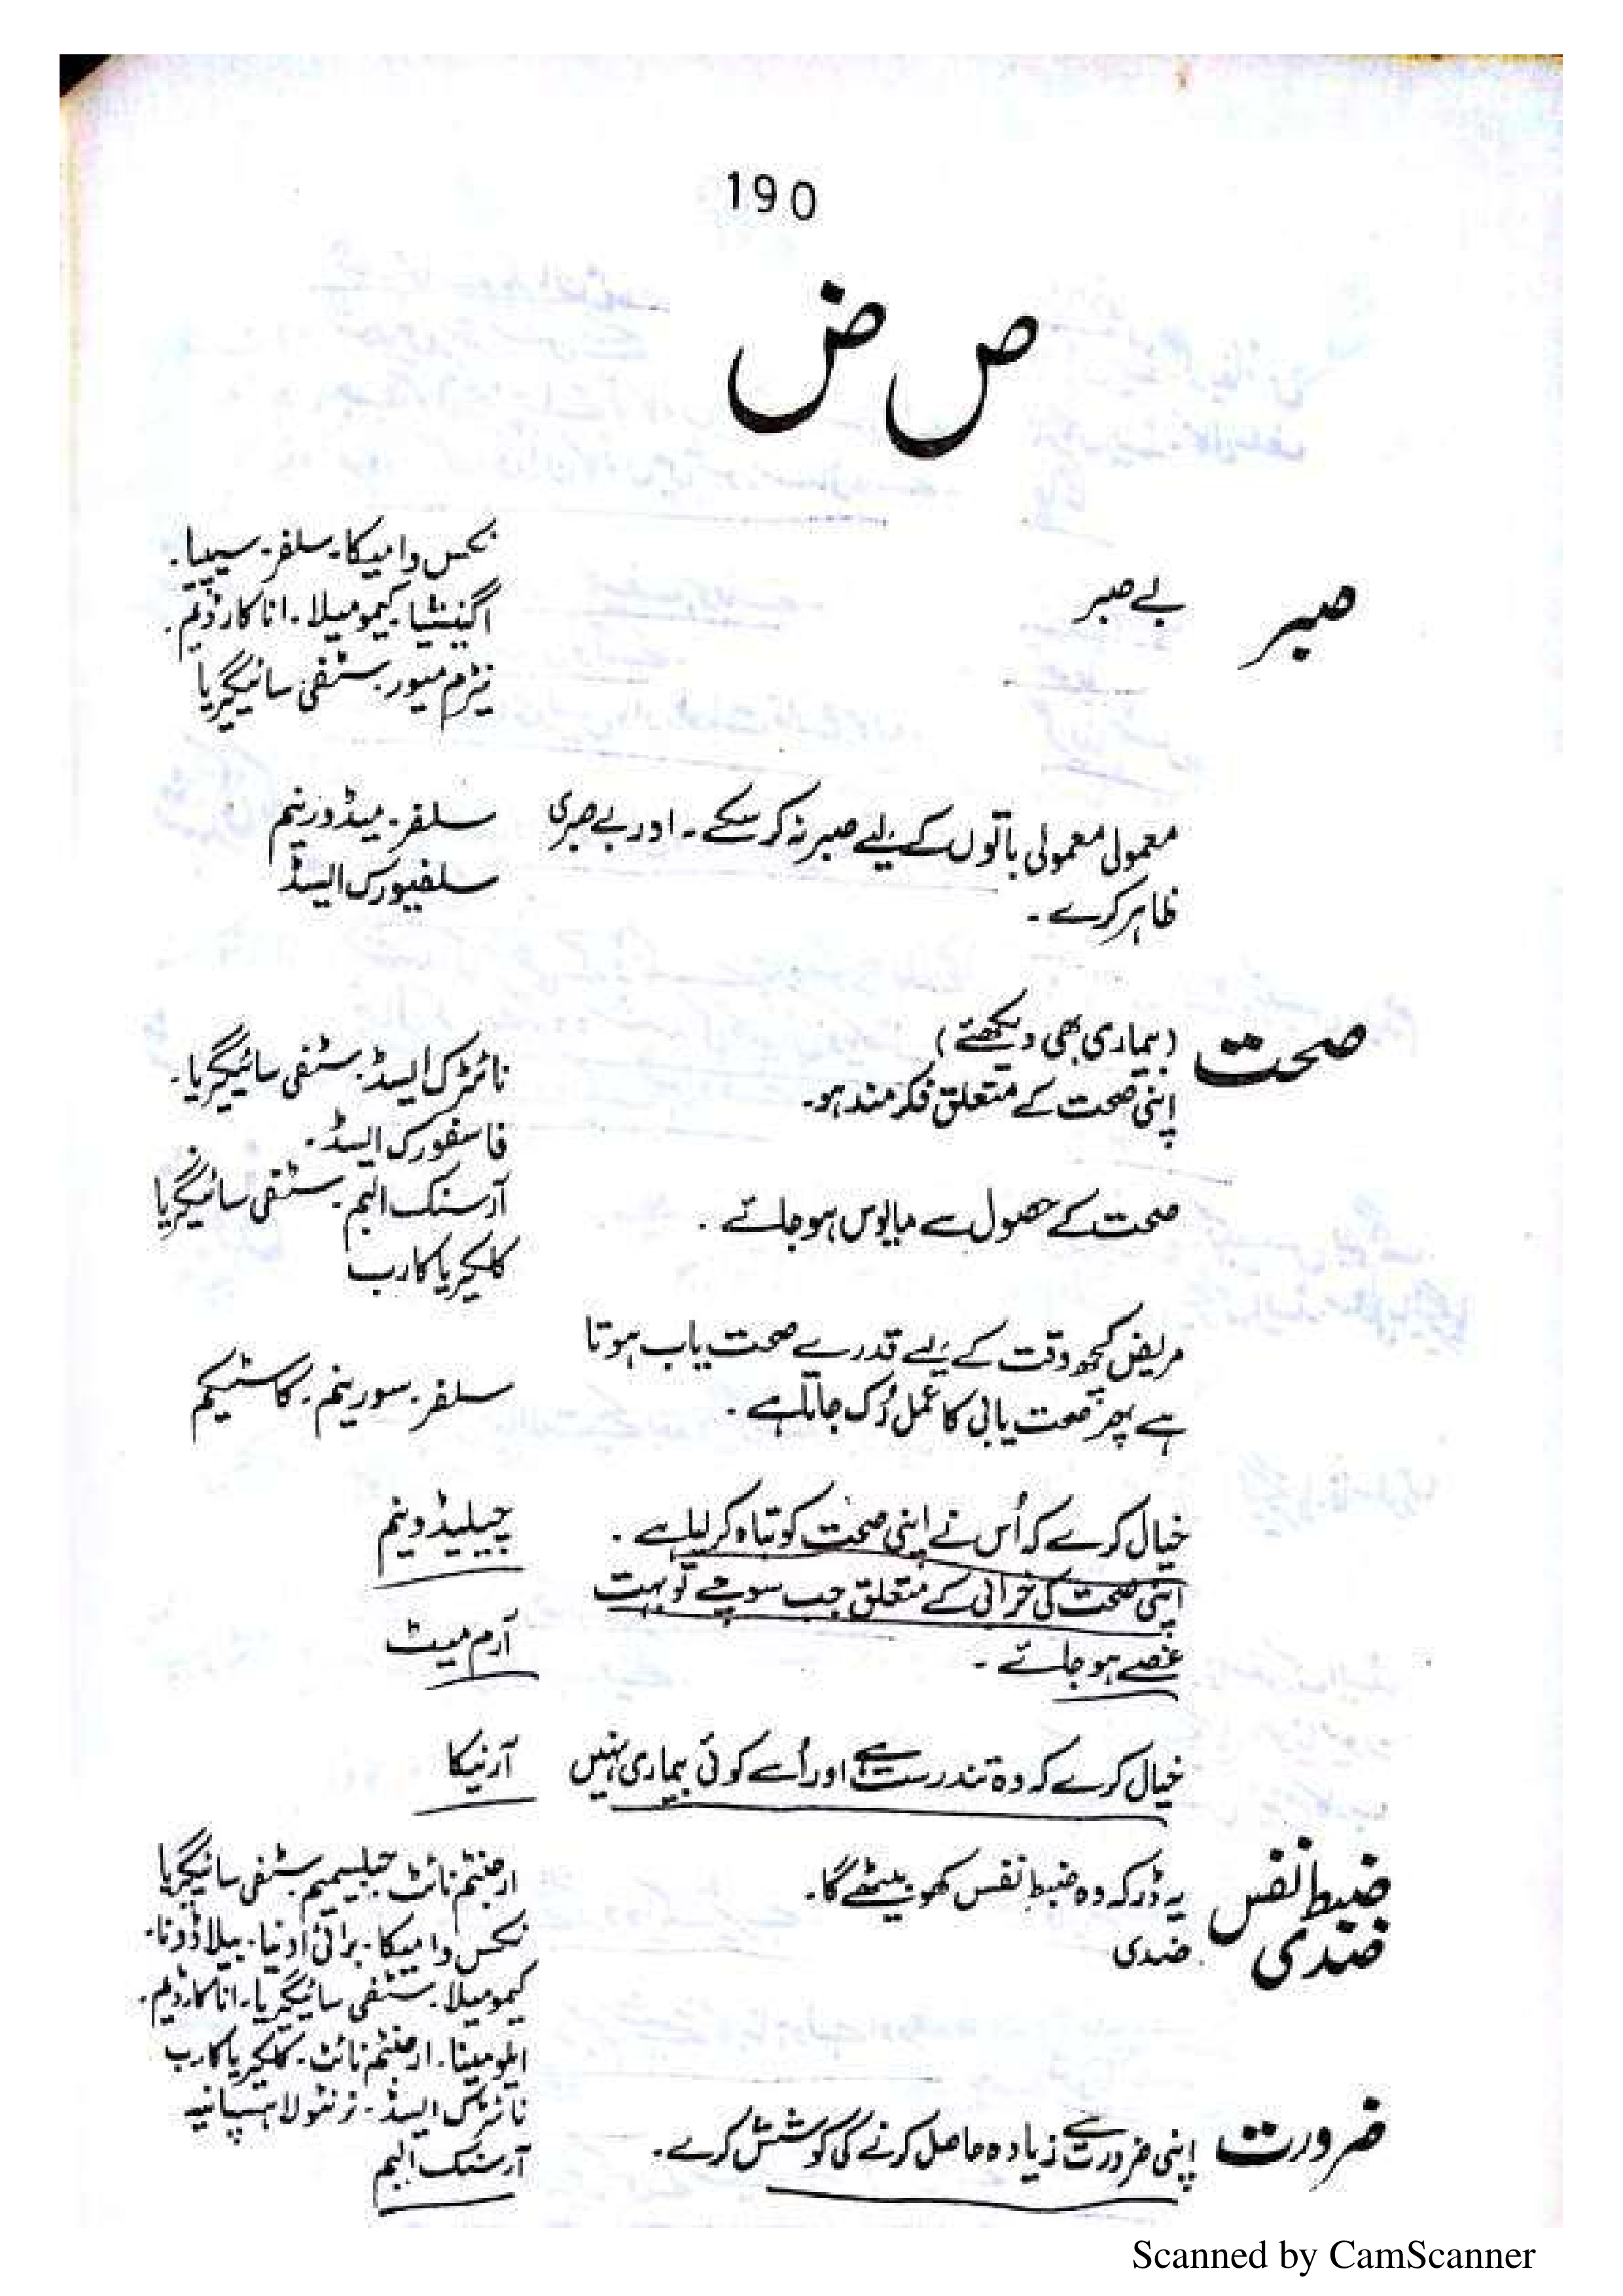 190
ص ض
صبر
بے صبر
نکس وامیکا۔ سلفر۔ سیپیا۔
اگنیشیا۔ کیمومیلا۔ اناکارڈیم۔
نیٹرم میور۔ سٹفی سائیگریا
معمولی معمولی باتوں کے لیے صبر نہ کر سکے۔ اور بے صبری
ظاہر کرے۔
سلفر۔ میڈورینم
سلفیورک ایسڈ
صحت
(بیماری بھی دیکھئے)
اپنی صحت کے متعلق فکر مند ہو۔
نائٹرک ایسڈ۔ سٹفی سائیگریا۔
فاسفورک ایسڈ۔
صحت کے حصول سے مایوس ہو جائے۔
آرسنک البم۔ سٹفی سائیگریا
کلکیریا کارب
مریض کچھ وقت کے لیے قدرے صحت یاب ہوتا
ہے پھر صحت یابی کا عمل رُک جاتا ہے۔
سلفر۔ سورینم۔ کاسٹیکم
خیال کرے کہ اُس نے اپنی صحت کو تباہ کر لیا ہے۔
چیلیڈونیم
اپنی صحت کی خرابی کے متعلق جب سوچے تو بہت
غصے ہو جائے۔
آرم میٹ
خیال کرے کہ وہ تندرست ہے اور اُسے کوئی بیماری نہیں
آرنیکا
ضبط نفس
یہ ڈر کہ وہ ضبطِ نفس کھو بیٹھے گا۔
ارجنٹم نائٹ۔ جیلسیمیم۔ سٹفی سائیگریا
ضدی
ضدی
نکس وامیکا۔ برائی اونیا۔ بیلاڈونا۔
کیمومیلا۔ سٹفی سائیگریا۔ اناکارڈیم۔
ایلومینا۔ ارجنٹم نائٹ۔ کلکیریا کارب
نائٹرک ایسڈ۔ ٹرنٹولا ہسپانیہ
ضرورت
اپنی ضرورت سے زیادہ حاصل کرنے کی کوشش کرے۔
آرسنک البم
Scanned by CamScanner